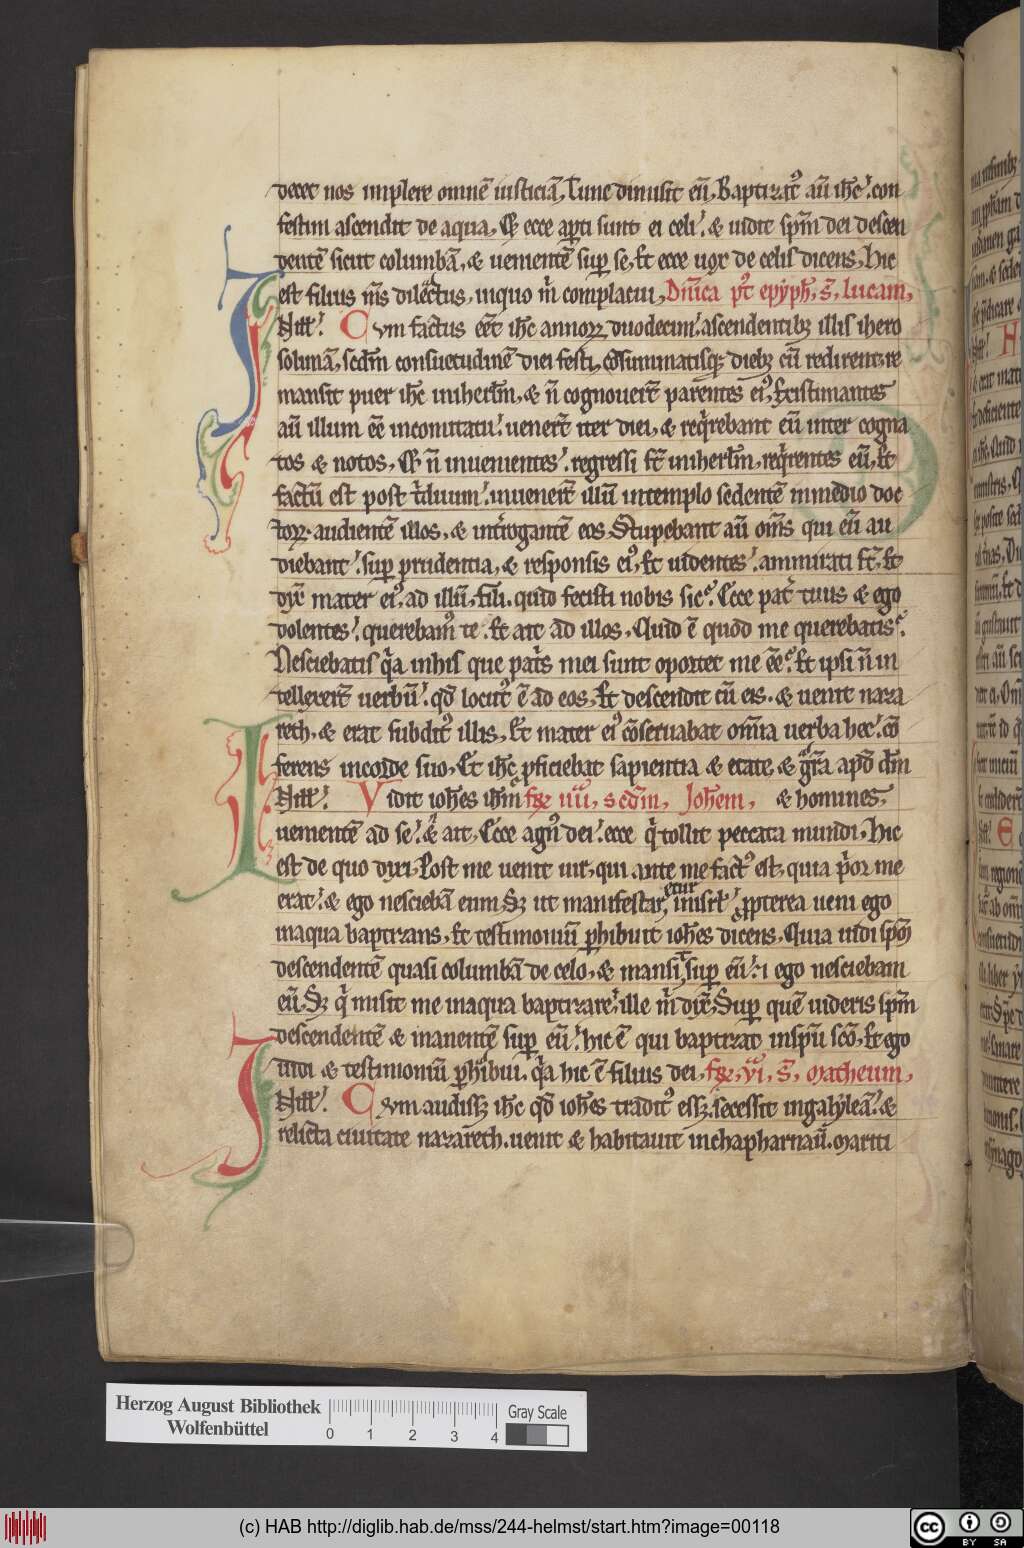 decet nos implere omnē iusticiā, Tunc dimisit eū, Baptizatꝰ aū ih̄c: con
festim ascendit de aqua, Et ecce apti sunt ei celi: & uidit sp̄m dei descen
dentē sicut columbā, & uenientē sup se, Et ecce uox de celis dicens, Hic
est filius m̄s dilectus, inquo m̄ complacui, Dn̄ica pꝰt epyph̄, s̄, lucam,
In ill̄: Cvm factus eēt ih̄c annoꝝ duodecim: ascendentibꝫ illis ihero
solimā, scd̄m consuetudinē diei festi, cōsummatisqꝫ diebꝫ cū redirent: re
mansit puer ih̄c inihrl̄m, & n̄ cognouert̄ parentes eiꝰ, Existimantes
aū illum eē incomitatu: uenert̄ iter diei, & reqͥrebant eū inter cogna
tos & notos, Et n̄ inuenientes: regressi st̄ inihrl̄m, reqͥrentes eū, Et
factū est post tͥduum: inuenert̄ illū intemplo sedentē inmedio doc
toꝝ. audientē illos, & int̄rogantē eos, Stupebant aū om̄s qui eū au
diebant: sup prudentia, & responsis eiꝰ, Et uidentes: ammirati st̄, Et
dyx̄ mater eiꝰ, ad illū, fili. quid fecisti nobis sic? Ecce pat̄ tuus & ego
dolentes: querebamꝰ te. Et ait ad illos, Quid ē quod me querebatis?
Nesciebatis qͥa inhis que pat̄s mei sunt oportet me eē? Et ipsi n̄ in
tellexert̄ uerbū: qd̄ locutꝰ ē ad eos, Et descendit cū eis. & uenit naza
reth, & erat subditꝰ illis, Et mater eiꝰ cōseruabat omīa uerba hec: cō
ferens incorde suo, Et ih̄c pficiebat sapientia & etate, & gr̄a apd̄ dm̄
In ill̄: Vidit ioh̄es ih̄m fr̄ iiii, scd̄m, Joh̄em, & homines,
uenientē ad se: & ait, Ecce agnꝰ dei: ecce qͥ tollit peccata mundi, Hic
est de quo dyxi, Post me uenit uir, qui ante me factꝰ est, quia pͥor me
erat: & ego nesciebā eum Sꝫ ut manifestaretur inisrl̄: propterea ueni ego
inaqua baptizans, Et testimoniū phibuit ioh̄es dicens, Quia uidi spm̄
descendentē quasi columbā de celo, & mansit sup eū: & ego nesciebam
eū, Sꝫ qͥ misit me inaqua baptizare: ille m̄ dix̄, Sup quē uideris sp̄m
descendentē & manentē sup eū: hic ē qui baptizat inspū scō, Et ego
uidi & testimoniū phibui, qͥa hic ē filius dei, fr̄, vi, s̄, Matheum,
In ill̄: Cvm audissꝫ ih̄c qd̄ ioh̄es traditꝰ essꝫ, secessit ingalyleā: &
relicta ciuitate nazareth, uenit & habitauit inchapharnaū, mariti
Herzog August Bibliothek
Wolfenbüttel
0 1 2 3 4
Gray Scale
(c) HAB http://diglib.hab.de/mss/244-helmst/start.htm?image=00118
cc BY SA